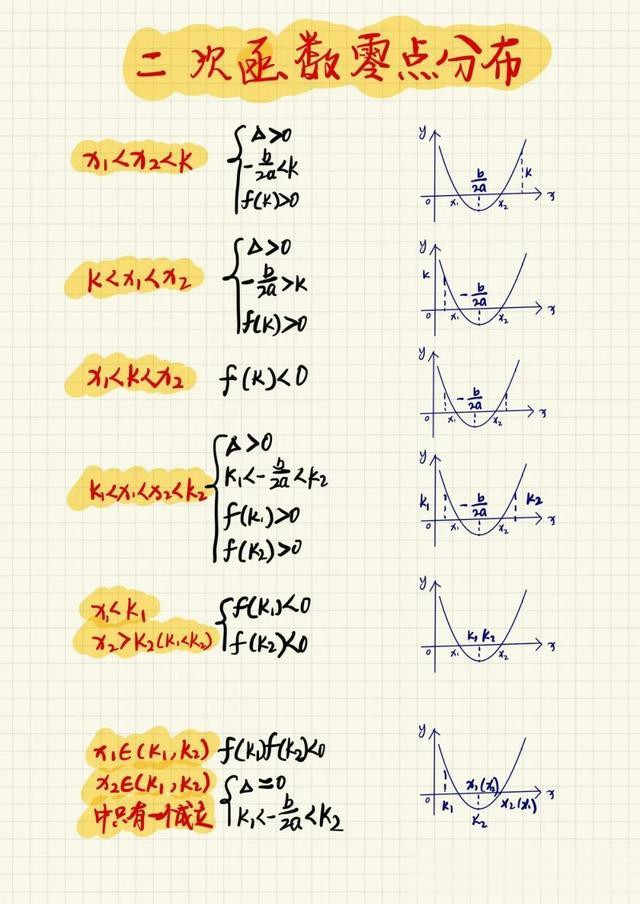 二次函数零点分布
x₁<x₂<k
Δ>0
-b/2a<k
f(k)>0
y
b/2a
k
0
x₁
x₂
x
k<x₁<x₂
Δ>0
-b/2a>k
f(k)>0
y
k
-b/2a
0
x₁
x₂
x
x₁<k<x₂
f(k)<0
y
-b/2a
0
x₁
x₂
x
k₁<x₁<x₂<k₂
Δ>0
k₁<-b/2a<k₂
f(k₁)>0
f(k₂)>0
y
k₁
-b/2a
k₂
0
x₁
x₂
x
x₁<k₁
x₂>k₂(k₁<k₂)
f(k₁)<0
f(k₂)<0
y
k₁ k₂
0
x₁
x₂
x
x₁∈(k₁,k₂)
x₂∈(k₁,k₂)
中只有一个成立
f(k₁)f(k₂)<0
Δ=0
k₁<-b/2a<k₂
y
x₁(x₂)
0
k₁
k₂
x₂(x₁)
x